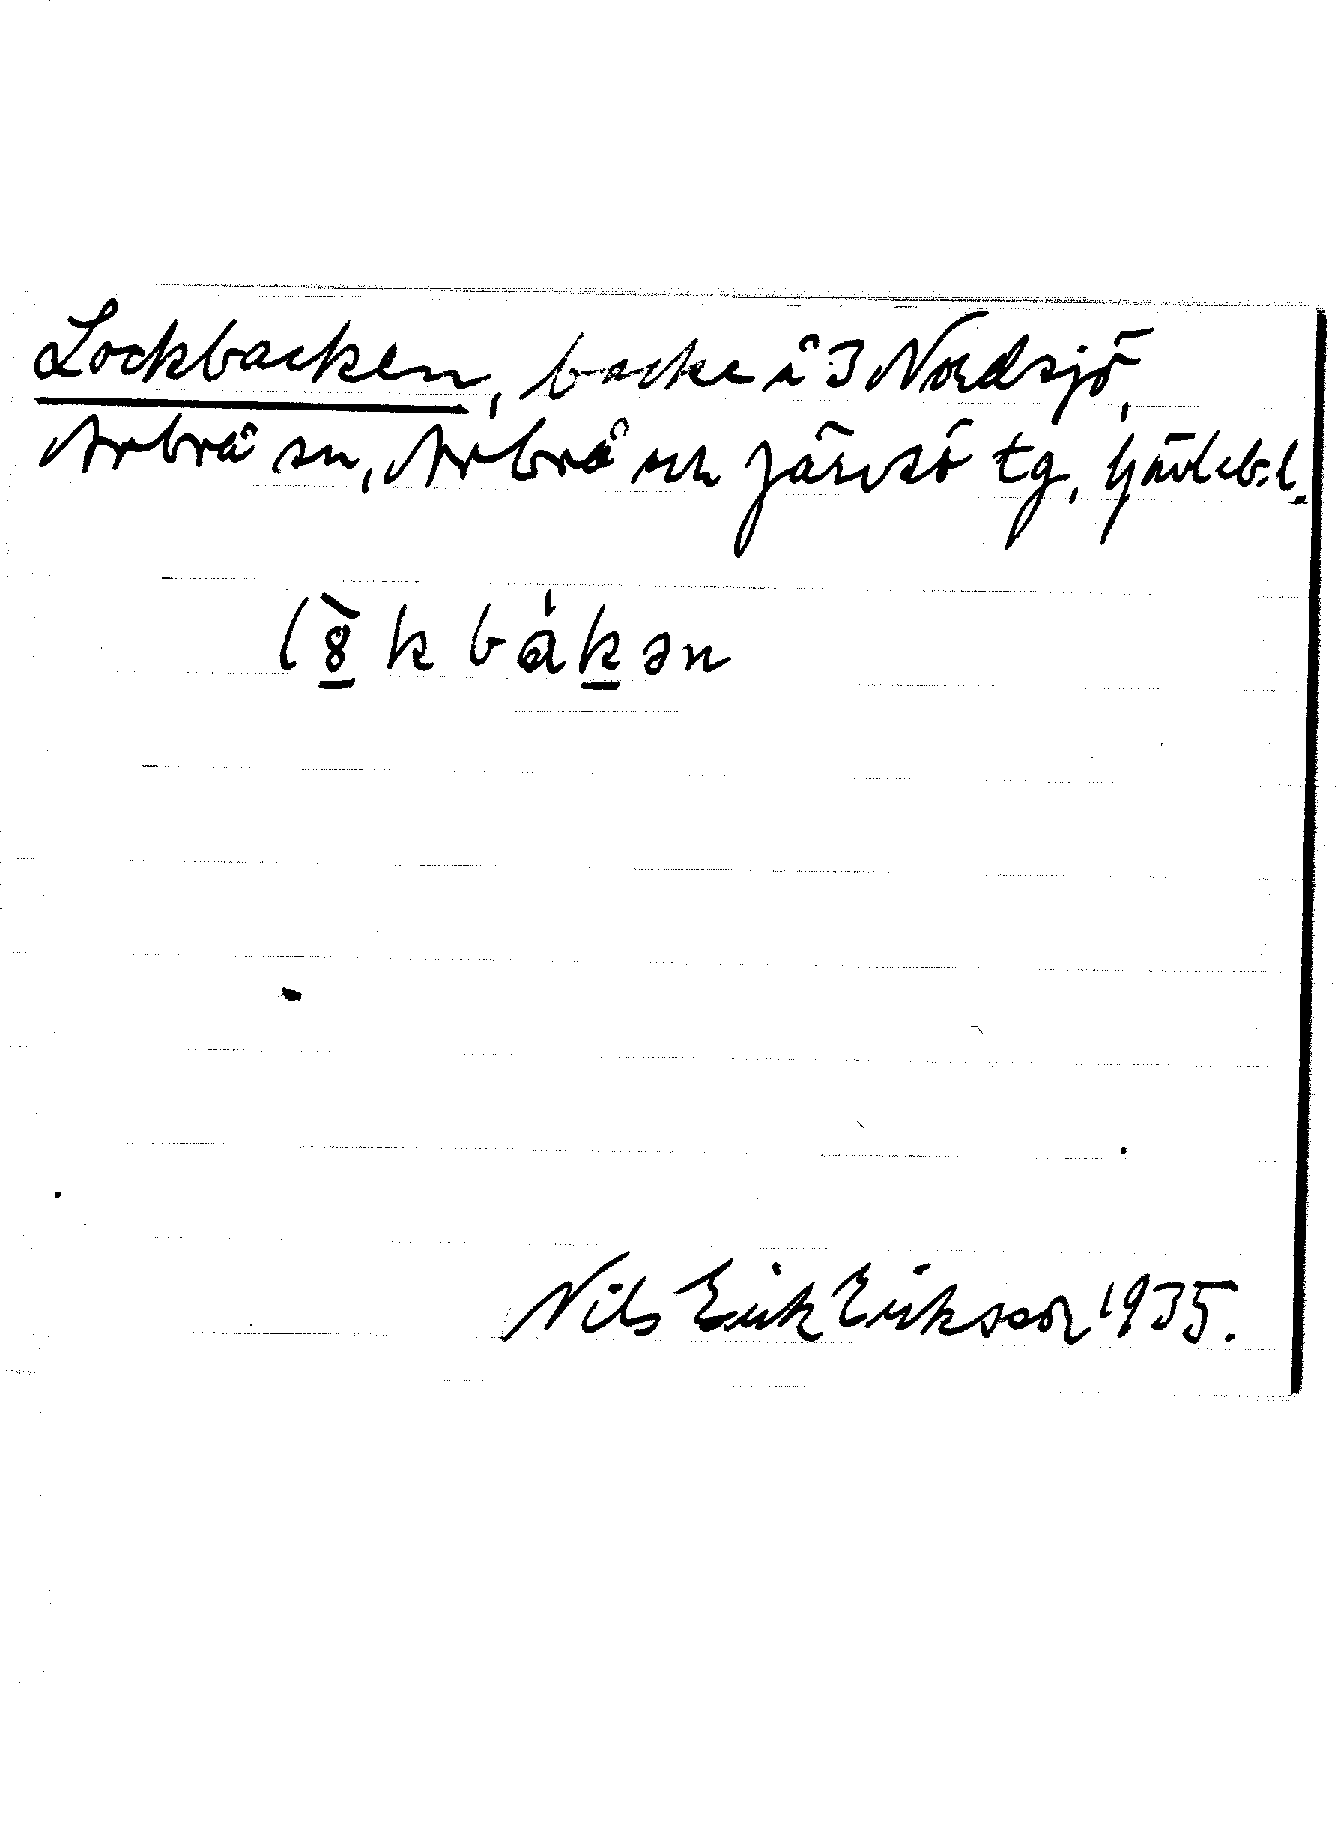 Lockbacken, backe å 3 Nordsjö,
Arbrå sn, Arbrå och Järvsö tg, Gävleb. l.
l8̀k bákən
Nils Erik Eriksson 1935.